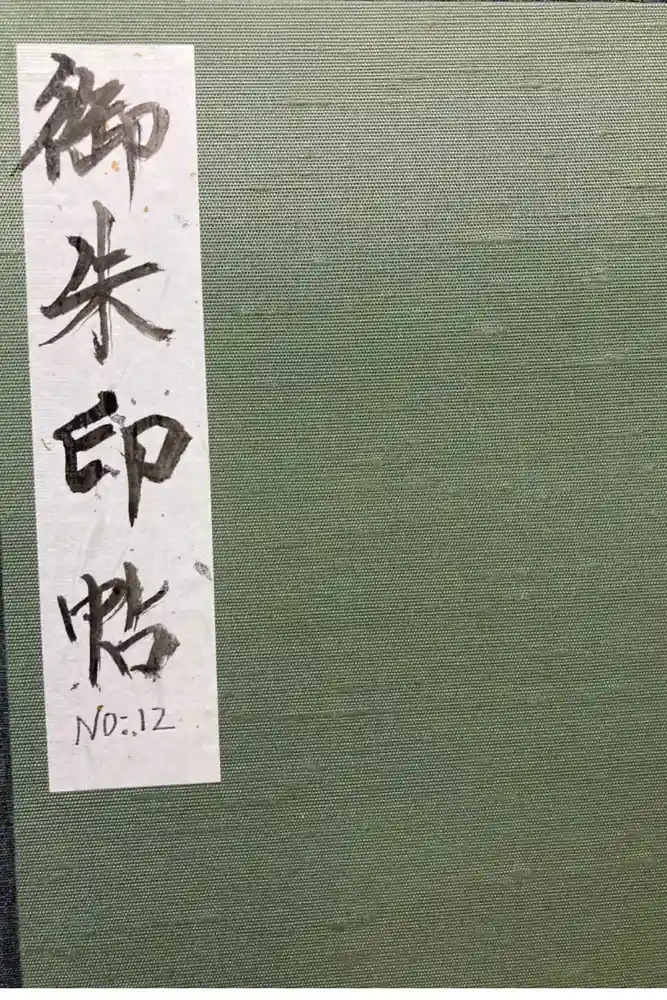 御朱印帖
NO:.12